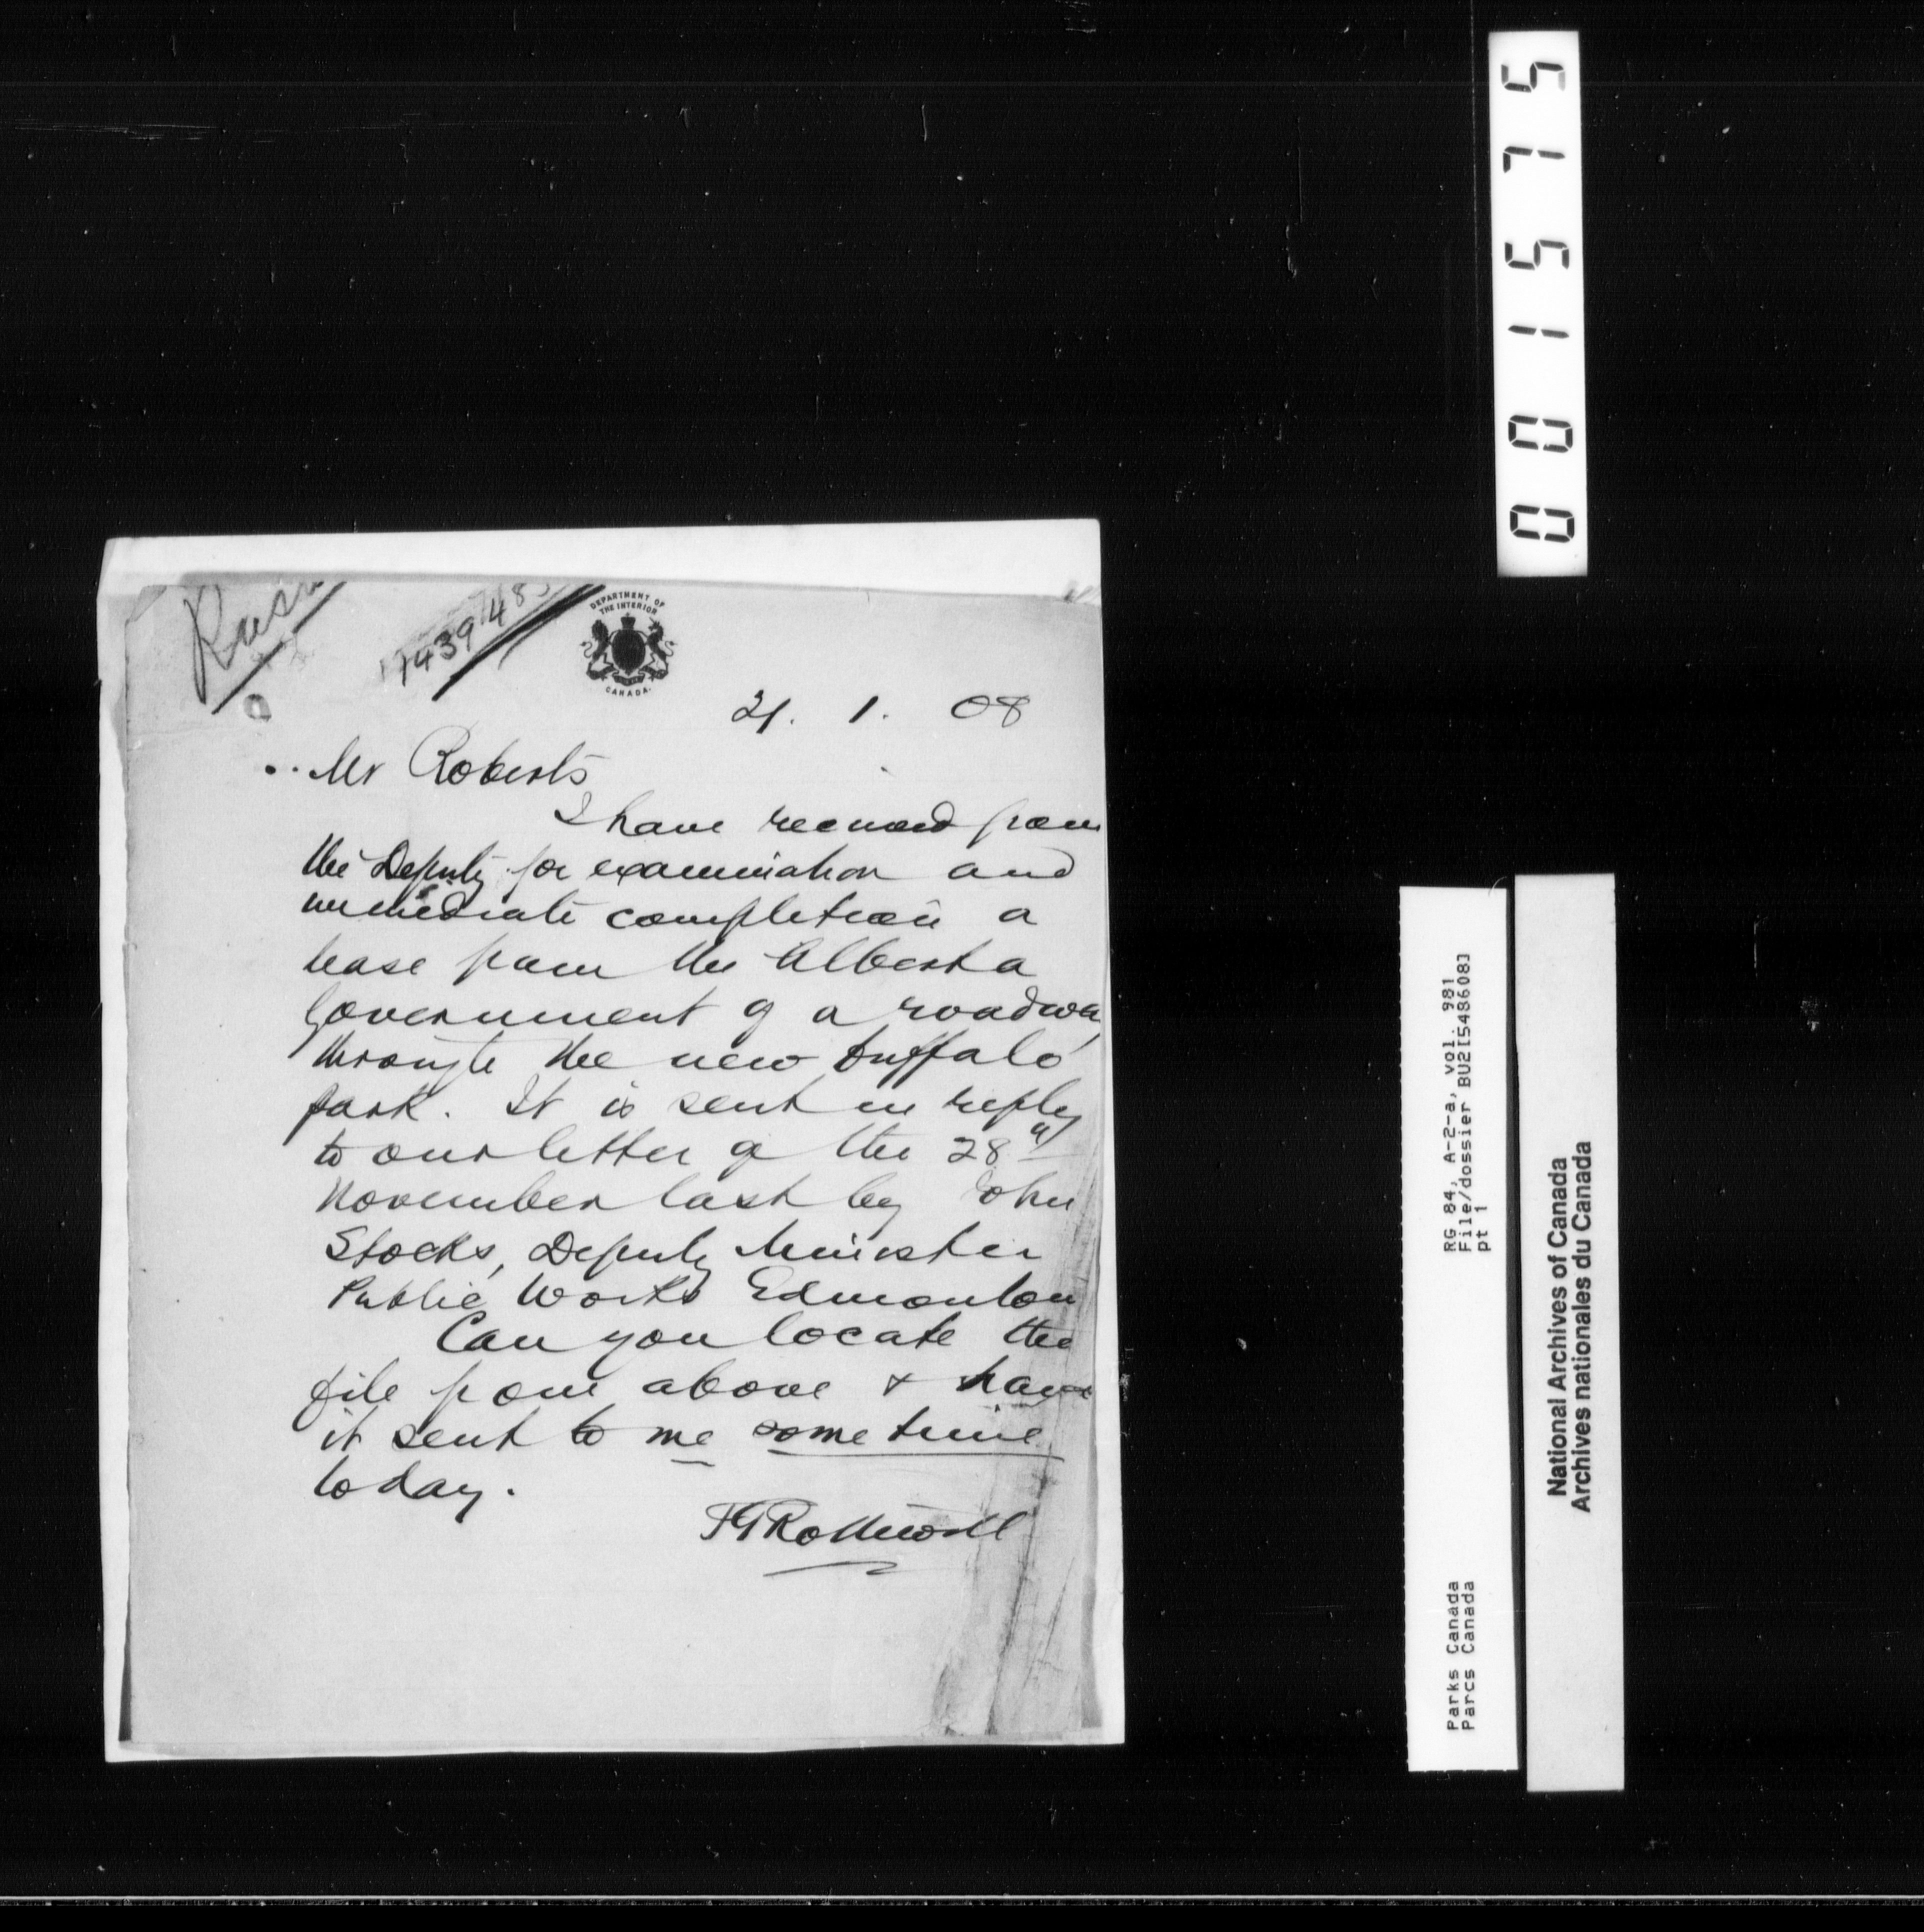 Rush
1439483
DEPARTMENT OF
THE INTERIOR
CANADA.
21. 1. 08
Mr Roberts
I have received from
the Deputy for examination and
immediate completion a
lease from the Alberta
Government of a roadway
through the new buffalo
park. It is sent in reply
to our letter of the 28th
November last by John
Stocks, Deputy Minister
Public Works Edmonton
Can you locate the
file from above & have
it sent to me some time
today.
TGRothwell
001575
RG 84, A-2-a, vol. 981
File/dossier BU2[5486083]
pt 1
Parks Canada
Parcs Canada
National Archives of Canada
Archives nationales du Canada